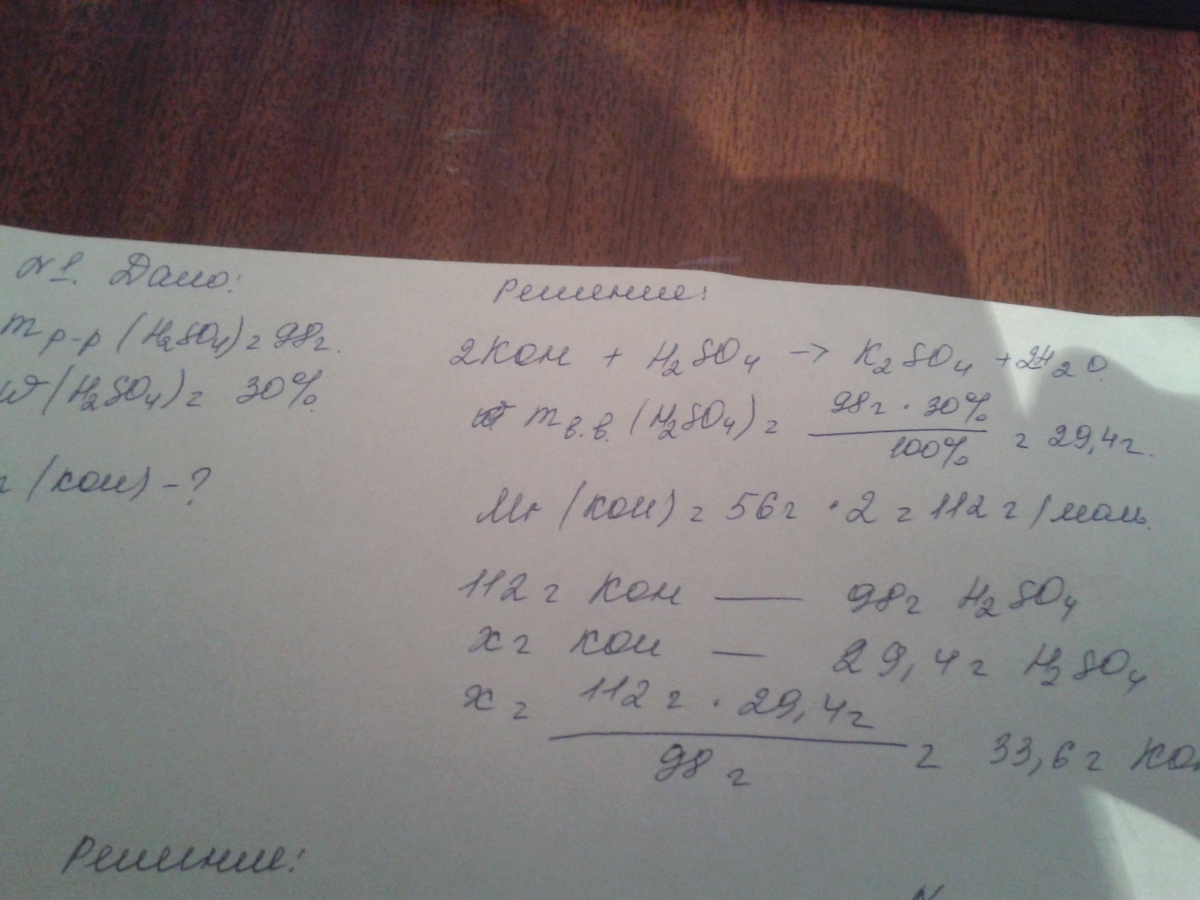 №1. Дано:
m р-р (H₂SO₄) = 98г.
w (H₂SO₄) = 30%.
(KOH) - ?
Решение:
2KOH + H₂SO₄ → K₂SO₄ + 2H₂O.
m в.в. (H₂SO₄) = 98г · 30% / 100% = 29,4г.
Mr (KOH) = 56г · 2 = 112 г/моль.
112 г KOH — 98г H₂SO₄
xг KOH — 29,4г H₂SO₄
x = 112 г · 29,4г / 98 г = 33,6г KOH
Решение: